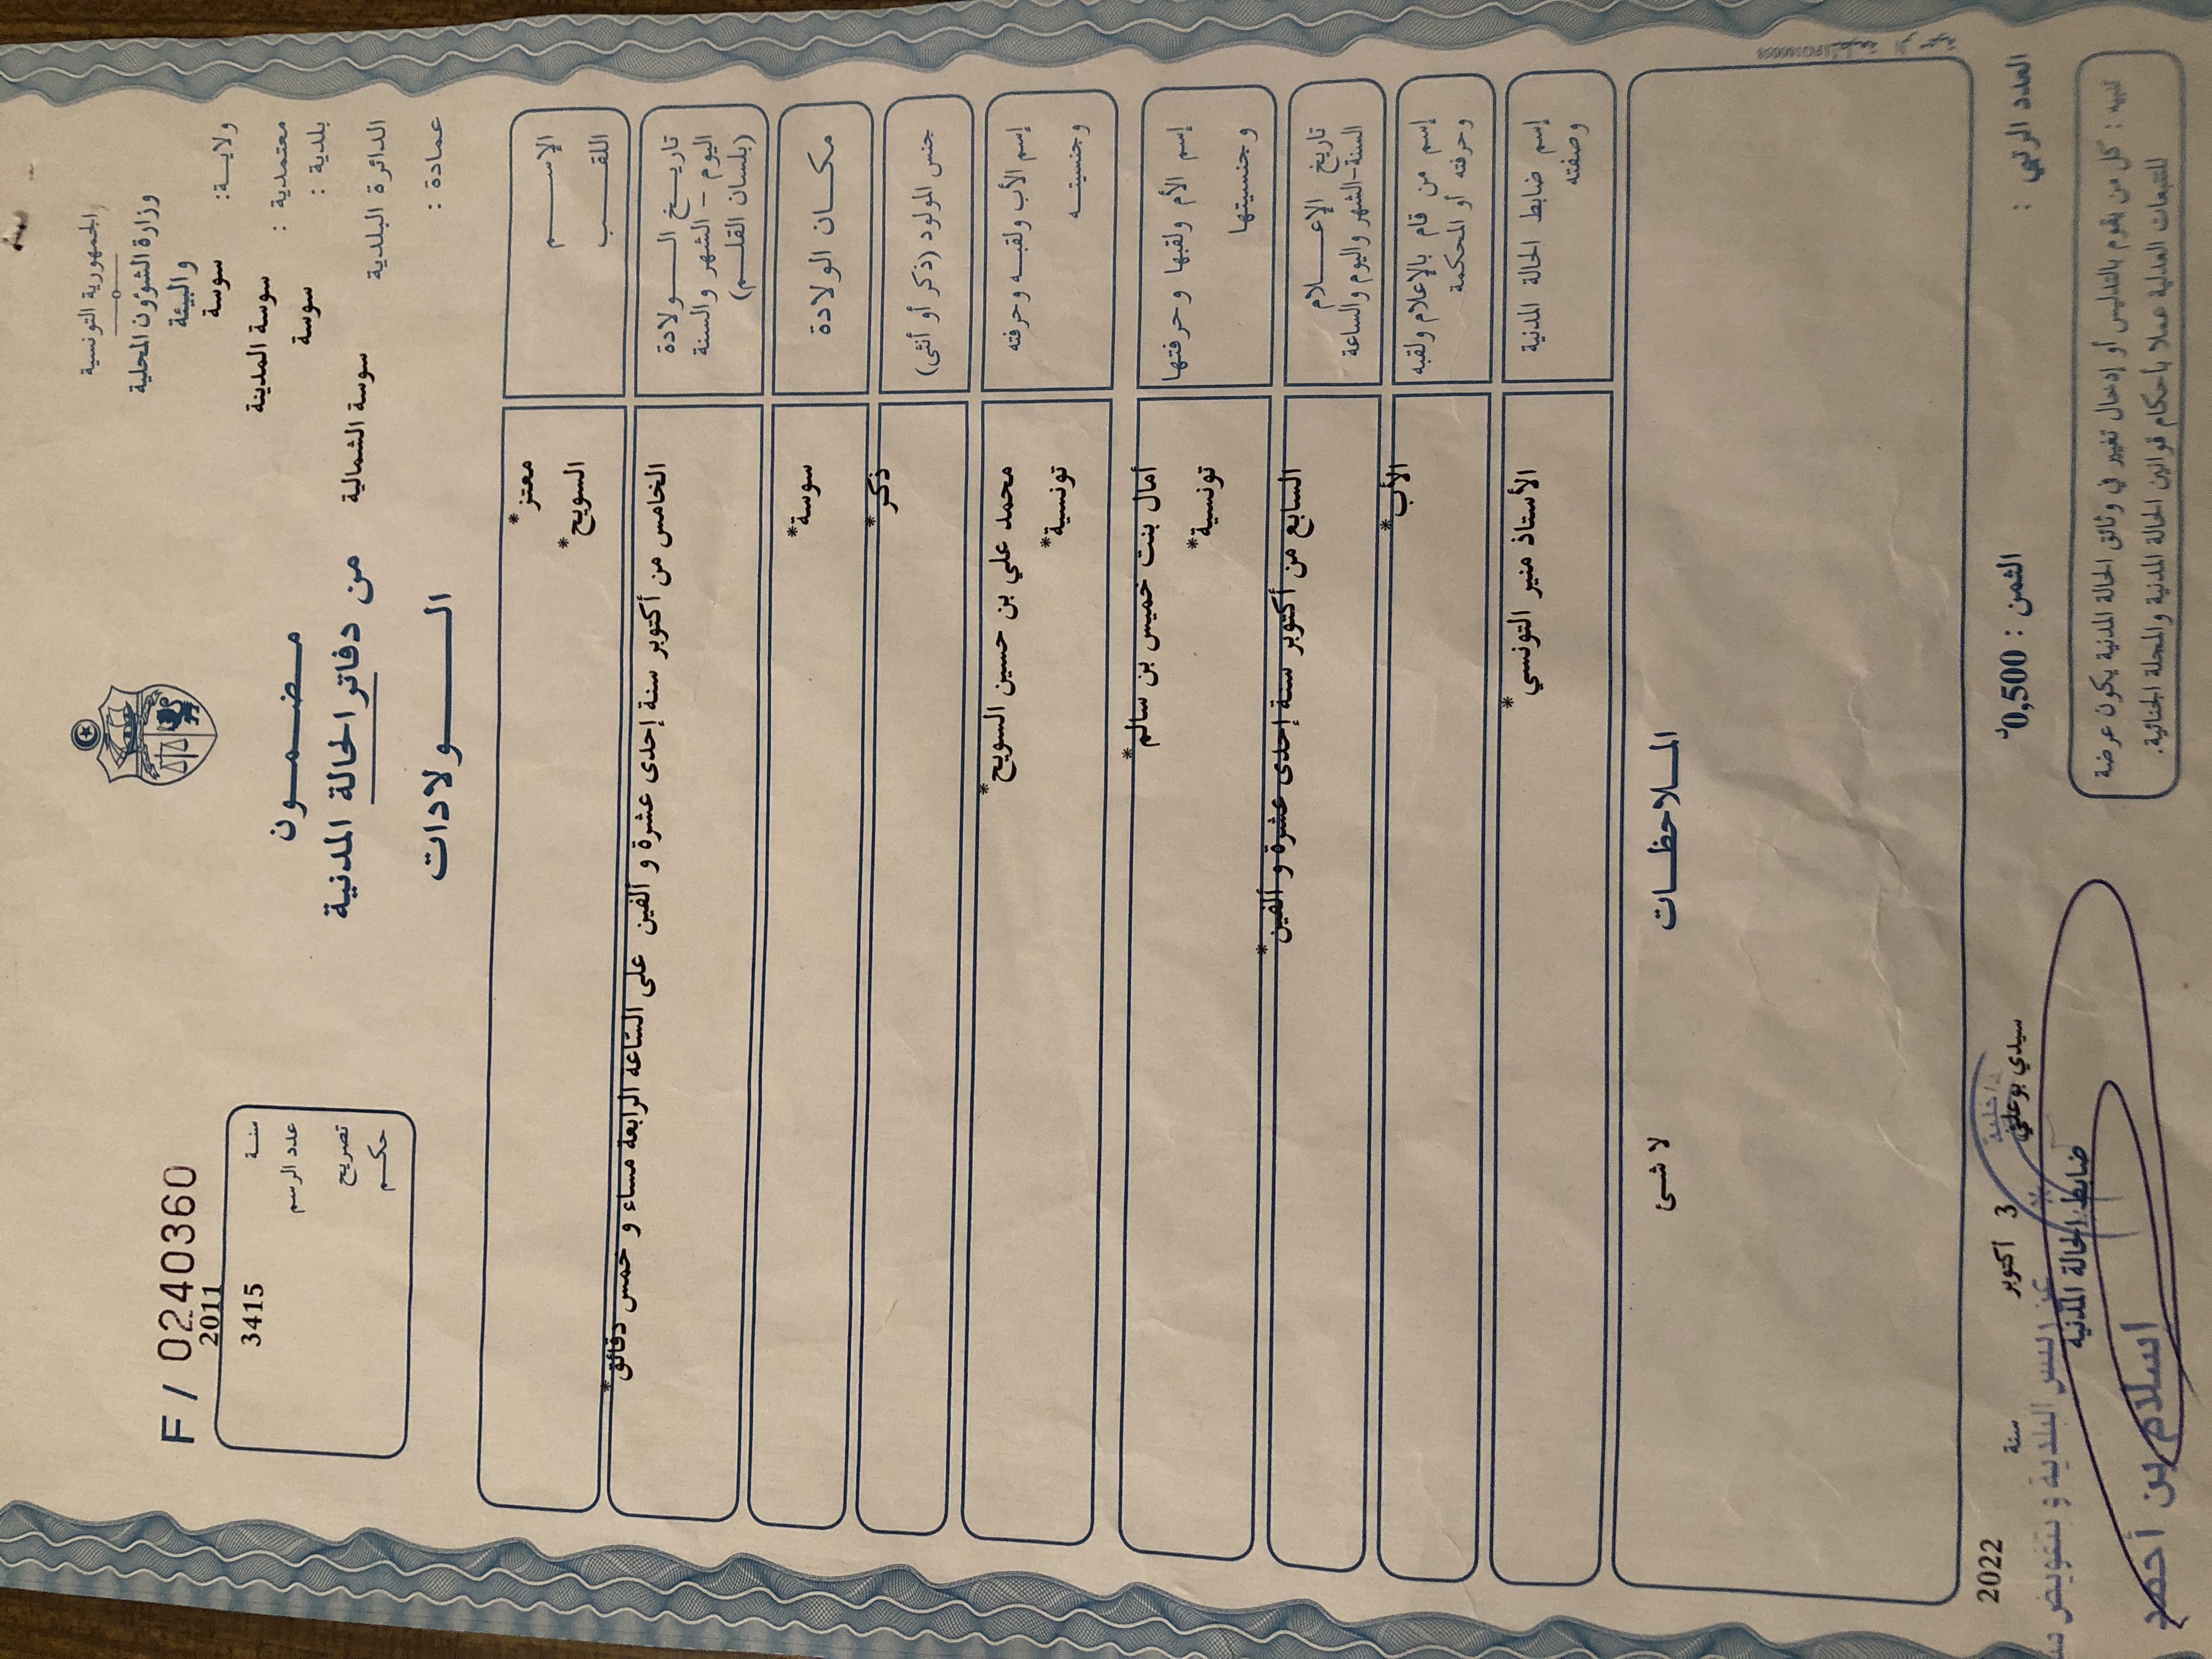 الجمهورية التونسية
وزارة الشؤون المحلية
والبيئة
ولاية: سوسة
معتمدية : سوسة المدينة
بلدية : سوسة
الدائرة البلدية سوسة الشمالية
عمادة :
مضمون
من دفاتر الحالة المدنية
الولادات
F / 02403360
سنة 2011
عدد الرسم 3415
تصريح
حكم
الإسم معتز*
اللقب السويح*
تاريخ الولادة
اليوم - الشهر والسنة
(بلسان القلم)
الخامس من أكتوبر سنة إحدى عشرة و ألفين على الساعة الرابعة مساء و خمس دقائق*
مكان الولادة سوسة*
جنس المولود (ذكر أو أنثى) ذكر*
إسم الأب ولقبه وحرفته محمد علي بن حسين السويح*
وجنسيته تونسية*
إسم الأم ولقبها وحرفتها أمال بنت خميس بن سالم*
وجنسيتها تونسية*
تاريخ الإعلام
السنة-الشهر واليوم والساعة
السابع من أكتوبر سنة إحدى عشرة و ألفين*
إسم من قام بالإعلام ولقبه
وحرفته أو المحكمة
الأب*
إسم ضابط الحالة المدنية
وصفته
الأستاذ منير التونسي*
الملاحظات
لا شئ
العدد الرتبي :
الثمن : 0,500د
سيدي بوعلي 3 أكتوبر سنة 2022
ضابط الحالة المدنية
تنبيه : كل من يقوم بالتدليس أو إدخال تغيير في وثائق الحالة المدنية يكون عرضة
للتتبعات العدلية عملا بأحكام قوانين الحالة المدنية والمجلة الجنائية.
اسلام بن أحمد